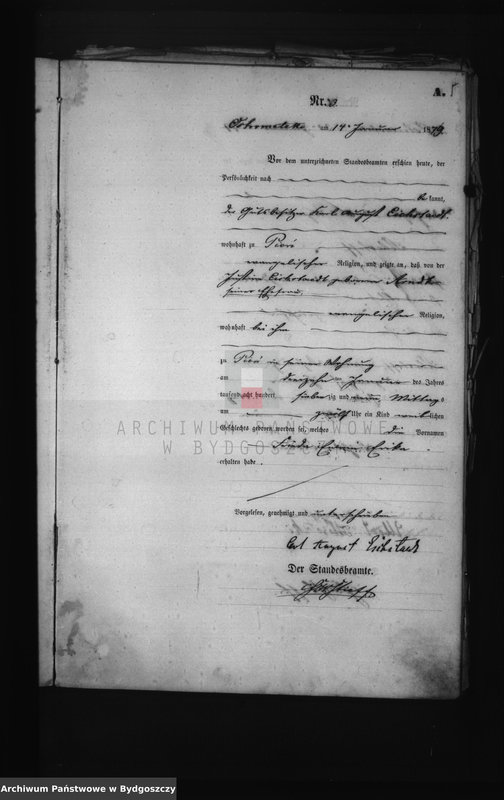 A.
Nr. 3
Ostrometzko am 14 Januar 1879
Vor dem unterzeichneten Standesbeamten erschien heute, der
Persönlichkeit nach
be kannt,
der Gutsbesitzer Karl August Eichstaedt
wohnhaft zu
evangelischer Religion, und zeigte an, daß von der
Eichstaedt geborenen
seiner Ehefrau,
evangelischer Religion,
wohnhaft bei ihm
zu in seiner Wohnung
am dreizehn ten Januar des Jahres
tausend acht hundert siebenzig und neun Mittags
um zwölf Uhr ein Kind weiblichen
Geschlechts geboren worden sei, welches die Vornamen
Emma Erika
erhalten habe.
Vorgelesen, genehmigt und unterschrieben
Carl August Eichstaedt
Der Standesbeamte.
ARCHIWUM PAŃSTWOWE
W BYDGOSZCZY
Archiwum Państwowe w Bydgoszczy